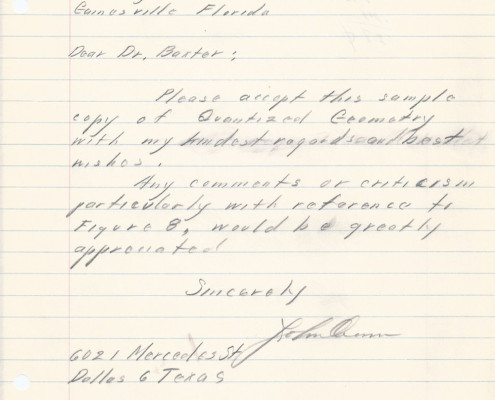 Gainesville Florida
Dear Dr. Baxter:
Please accept this sample
copy of Quantized Geometry
with my kindest regards and best
wishes.
Any comments or criticism
particularly with reference to
Figure 8, would be greatly
appreciated
Sincerely
John
6021 Mercedes St
Dallas 6 Texas